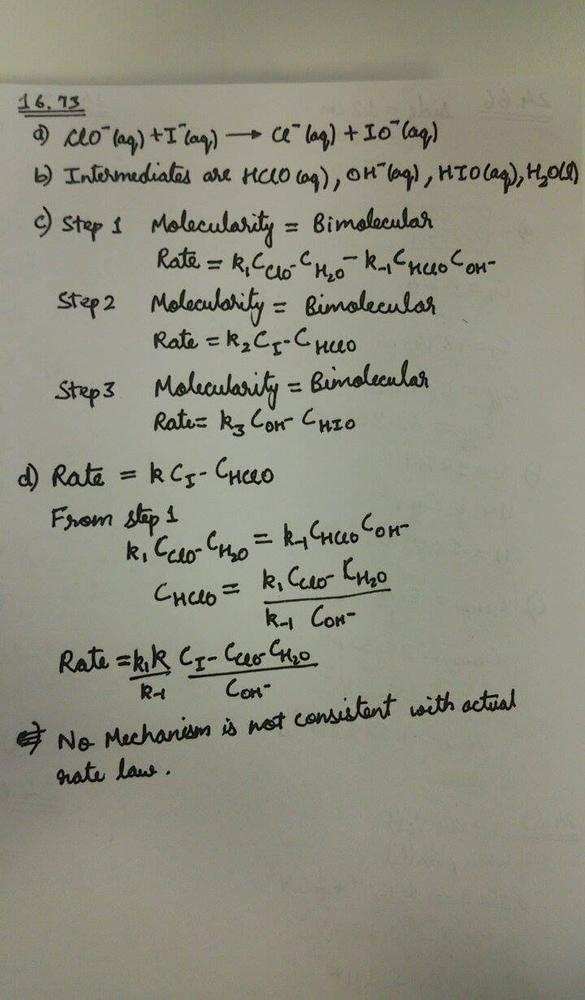 16.73
a) ClO⁻(aq) + I⁻(aq) ⟶ Cl⁻(aq) + IO⁻(aq)
b) Intermediates are HClO(aq), OH⁻(aq), HIO(aq), H₂O(l)
c) Step 1 Molecularity = Bimolecular
Rate = k₁C_ClO⁻ C_H₂O − k₋₁C_HClO C_OH⁻
Step 2 Molecularity = Bimolecular
Rate = k₂C_I⁻ C_HClO
Step 3 Molecularity = Bimolecular
Rate = k₃ C_OH⁻ C_HIO
d) Rate = k C_I⁻ C_HClO
From step 1
k₁ C_ClO⁻ C_H₂O = k₋₁ C_HClO C_OH⁻
C_HClO = k₁ C_ClO⁻ C_H₂O / k₋₁ C_OH⁻
Rate = k₁k/k₋₁ C_I⁻ C_ClO⁻ C_H₂O / C_OH⁻
No Mechanism is not consistent with actual
rate law.